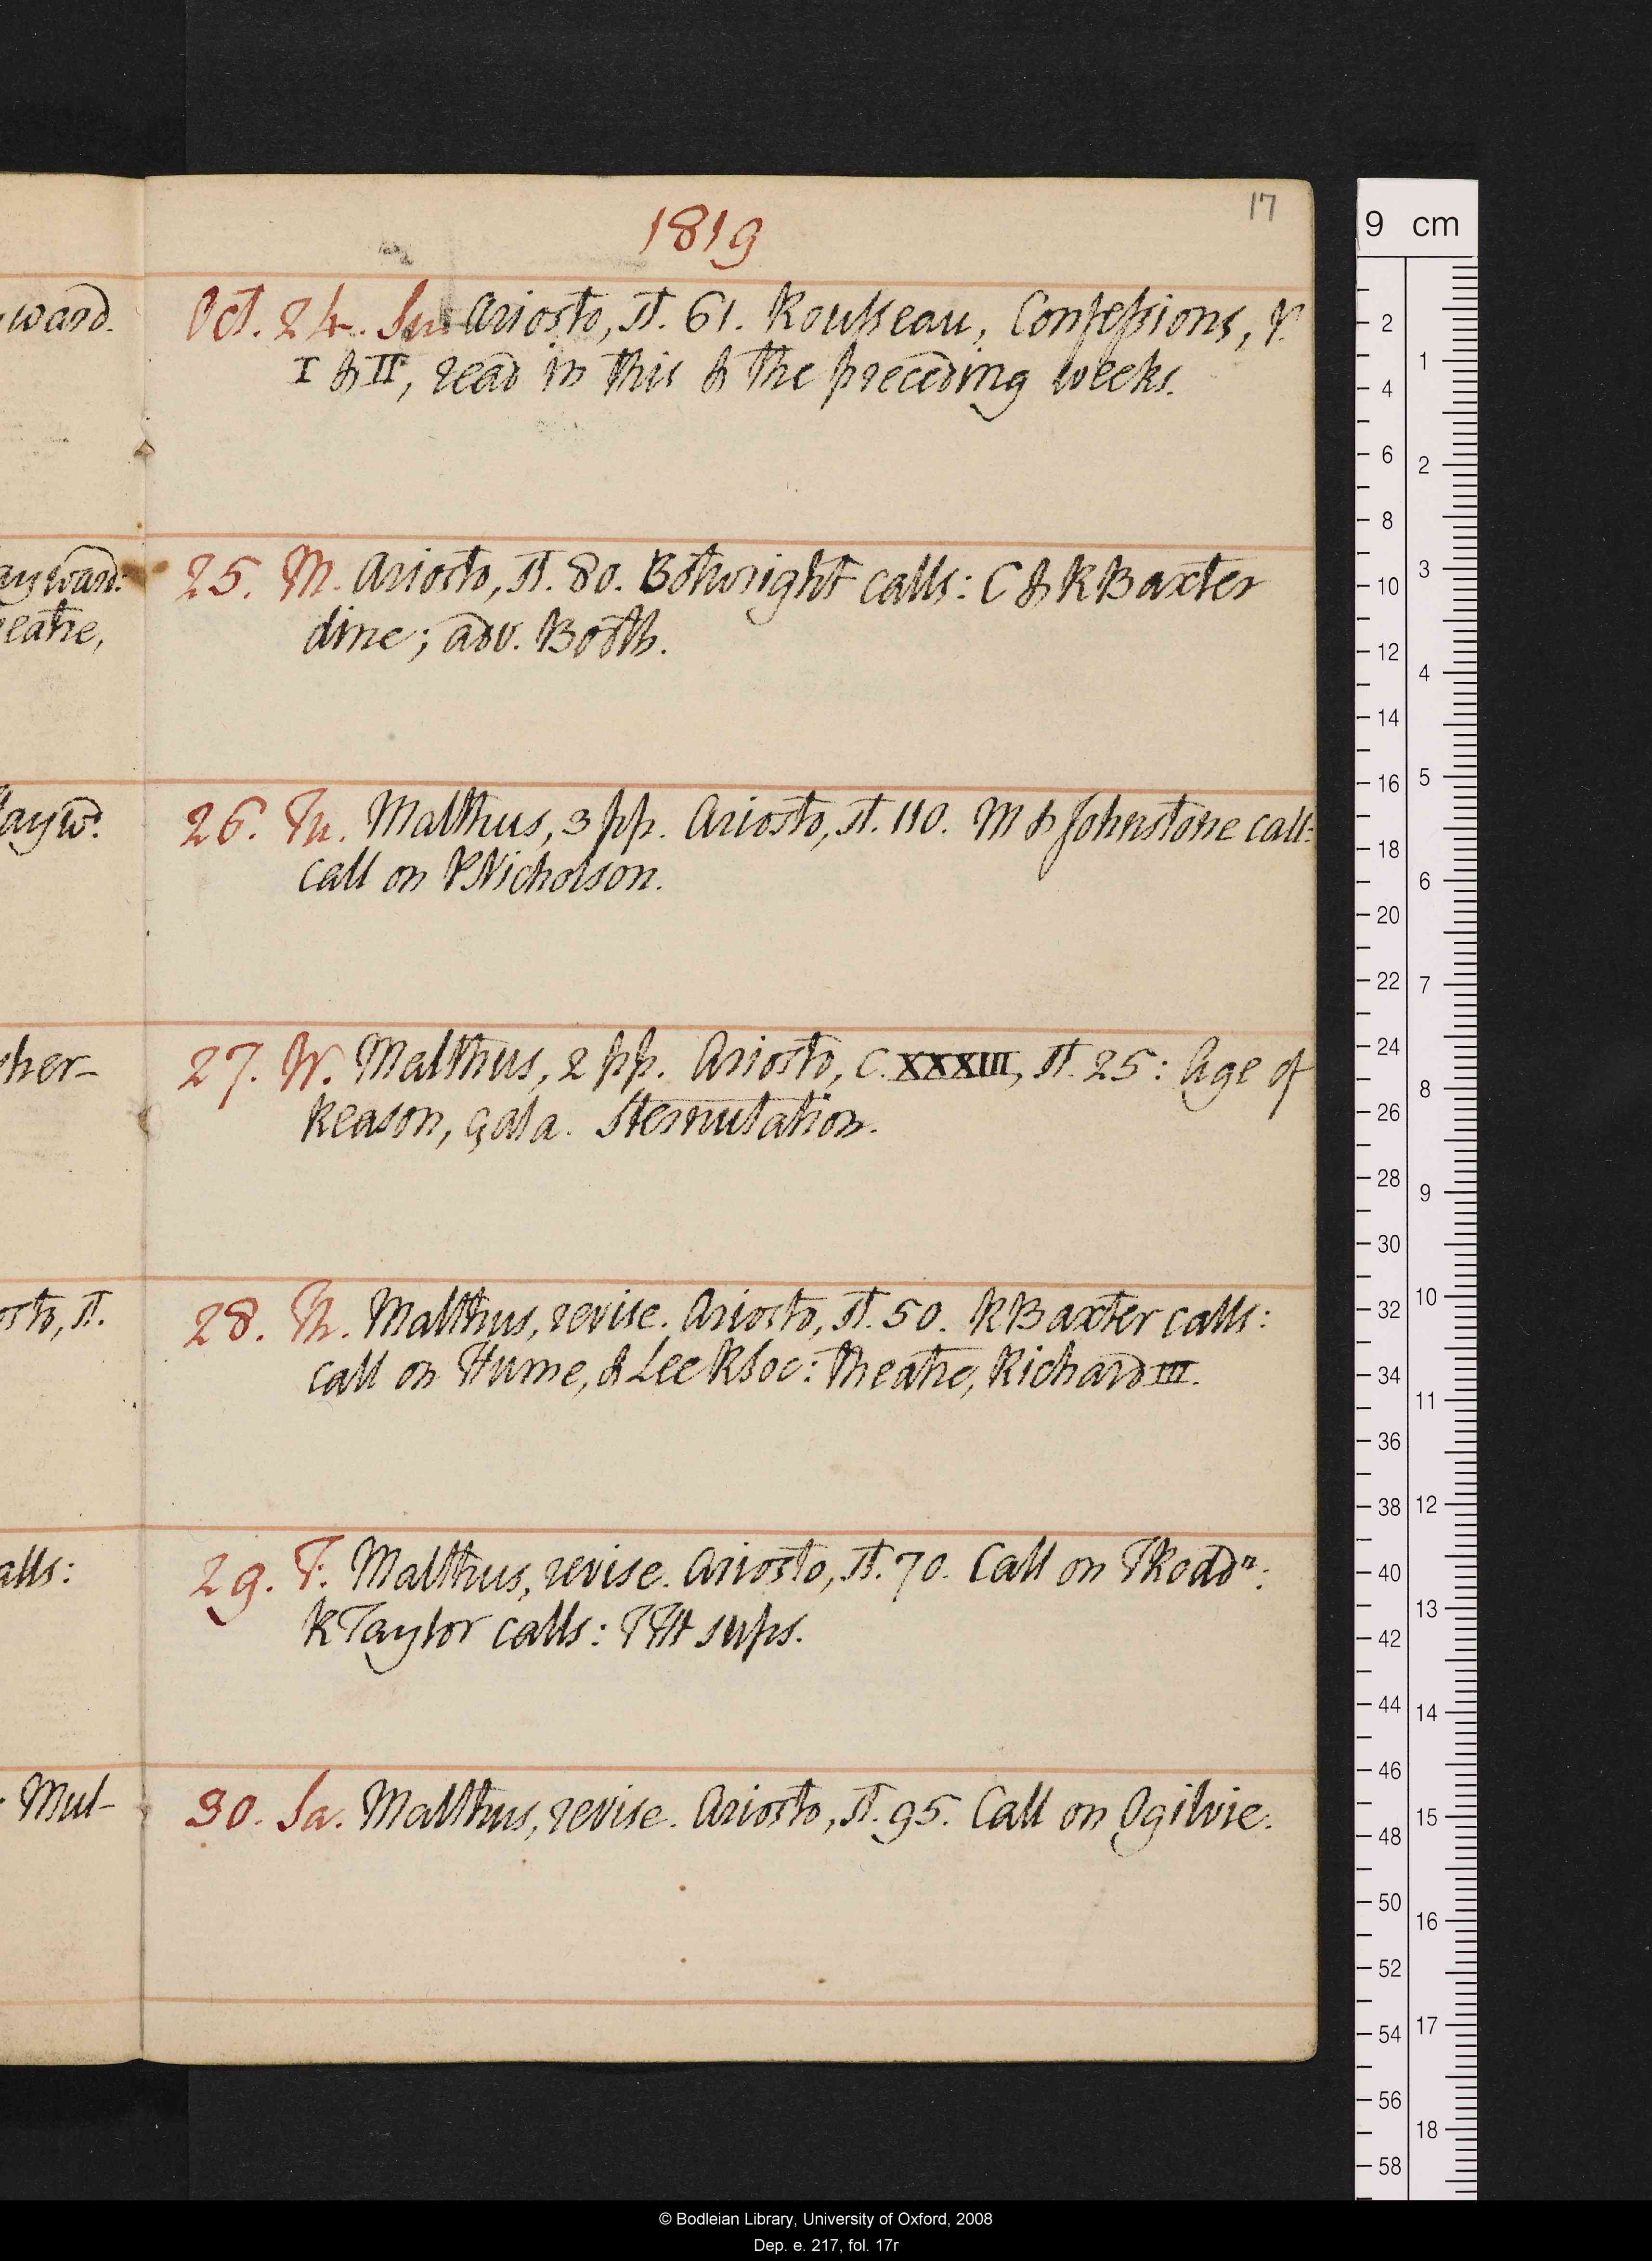 17
1819
ward.
Oct. 24. Su. Ariosto, st. 61. Rousseau, Confessions, P.
I & II, read in this & the preceding weeks.
ayward:
eatre,
25. M. Ariosto, st. 80. Botwright calls: C & R Baxter
dine; adv. Both.
ayw.d
26. Tu. Malthus, 3 pp. Ariosto, st. 110. M & Johnstone call:
call on P Nicholson.
her-
27. W. Malthus, 2 pp. Ariosto, C. XXXIII, st. 25: Age of
Reason, çala. Sternutation.
osto, st.
28. Th. Malthus, revise. Ariosto, st. 50. R Baxter calls:
call on Hume, & Lee RSoc: theatre, Richard III.
alls:
29. F. Malthus, revise. Ariosto, st. 70. Call on T Rodd n:
R Taylor calls: TTH sups.
Mul-
30. Sa. Malthus, revise. Ariosto, st. 95. Call on Ogilvie.
9 cm
2 4 6 8 10 12 14 16 18 20 22 24 26 28 30 32 34 36 38 40 42 44 46 48 50 52 54 56 58
1 2 3 4 5 6 7 8 9 10 11 12 13 14 15 16 17 18
© Bodleian Library, University of Oxford, 2008
Dep. e. 217, fol. 17r